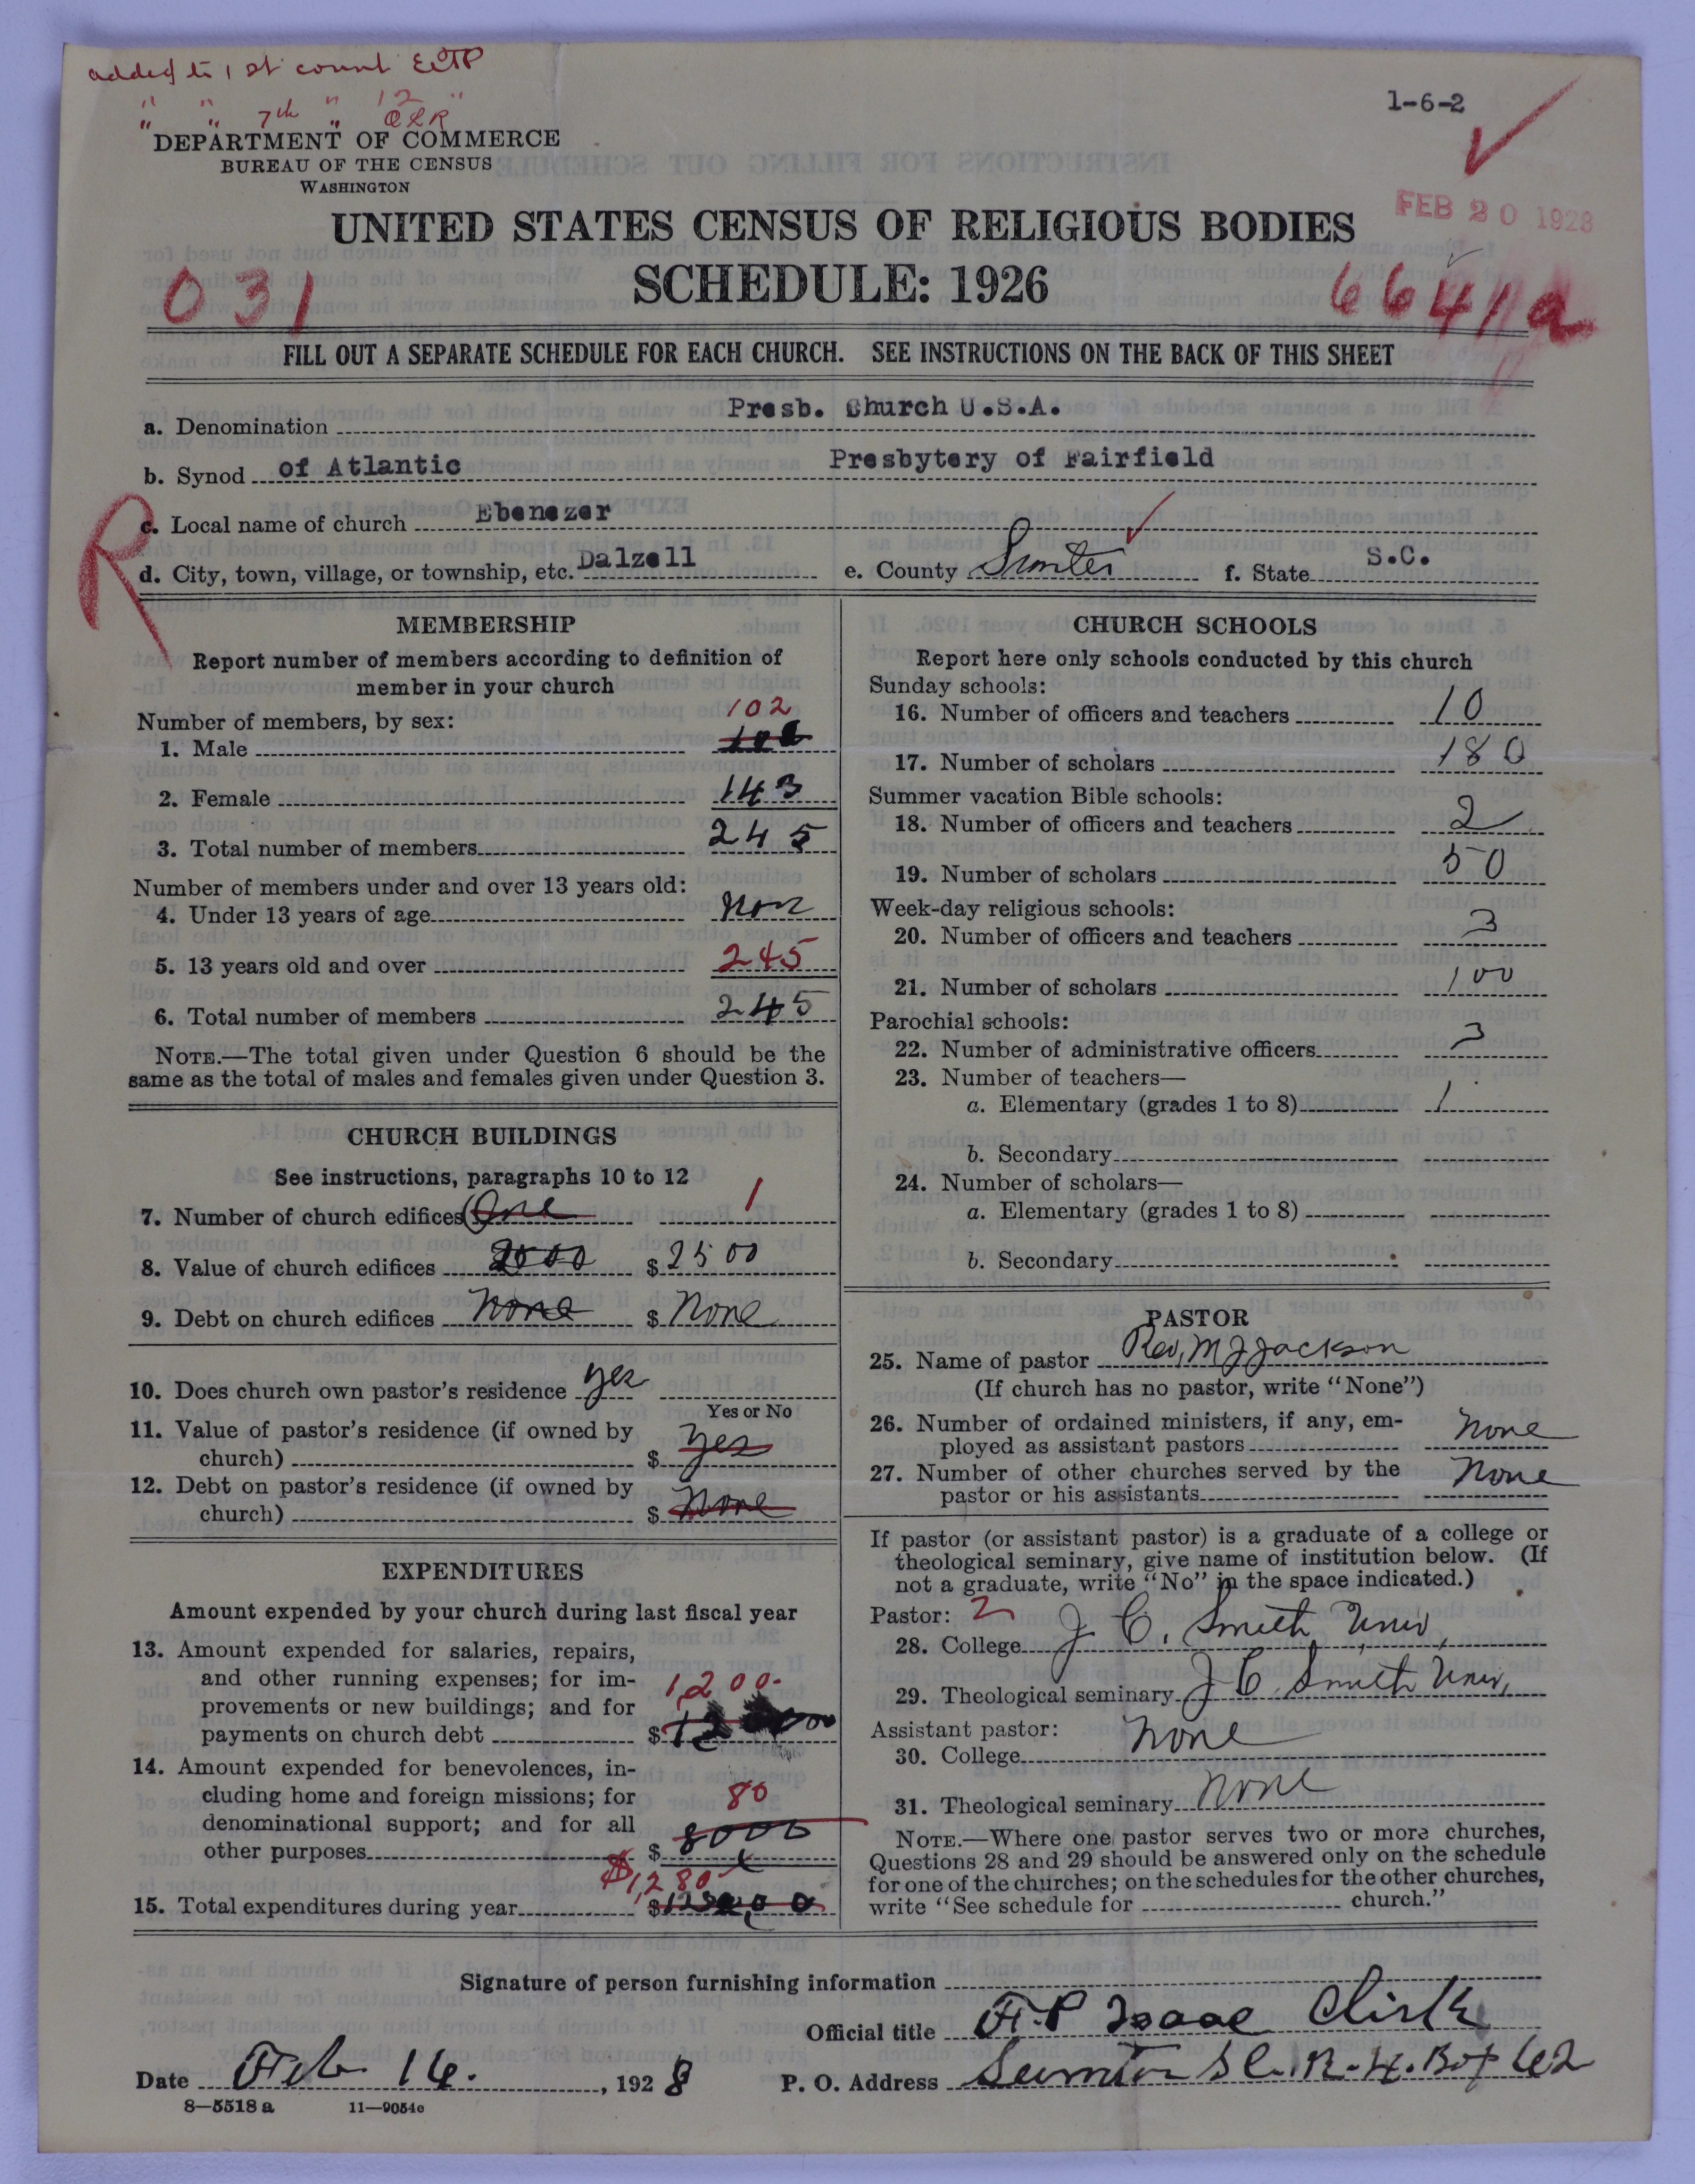 added to 1 st count
" " 7th " 12 "
1-6-2
DEPARTMENT OF COMMERCE
BUREAU OF THE CENSUS
WASHINGTON
FEB 20 1928
UNITED STATES CENSUS OF RELIGIOUS BODIES
SCHEDULE: 1926
031
6641a
FILL OUT A SEPARATE SCHEDULE FOR EACH CHURCH. SEE INSTRUCTIONS ON THE BACK OF THIS SHEET
a. Denomination Presb. Church U.S.A.
b. Synod of Atlantic Presbytery of Fairfield
R
c. Local name of church Ebenezer
d. City, town, village, or township, etc. Dalzell e. County Sumter f. State S.C.
MEMBERSHIP
Report number of members according to definition of
member in your church
Number of members, by sex:
102
1. Male
2. Female 143
3. Total number of members 245
Number of members under and over 13 years old:
4. Under 13 years of age Non
5. 13 years old and over 245
6. Total number of members 245
NOTE.—The total given under Question 6 should be the
same as the total of males and females given under Question 3.
CHURCH BUILDINGS
See instructions, paragraphs 10 to 12
7. Number of church edifices One 1
8. Value of church edifices 2000 $ 2500
9. Debt on church edifices None $ None
10. Does church own pastor's residence yes
Yes or No
11. Value of pastor's residence (if owned by
church) $ yes
12. Debt on pastor's residence (if owned by
church) $ None
EXPENDITURES
Amount expended by your church during last fiscal year
13. Amount expended for salaries, repairs,
and other running expenses; for im-
provements or new buildings; and for
1,200.
payments on church debt $
14. Amount expended for benevolences, in-
cluding home and foreign missions; for
80
denominational support; and for all
other purposes $ 8000
$1,280
15. Total expenditures during year $
CHURCH SCHOOLS
Report here only schools conducted by this church
Sunday schools:
16. Number of officers and teachers 10
17. Number of scholars 180
Summer vacation Bible schools:
18. Number of officers and teachers 2
19. Number of scholars 50
Week-day religious schools:
20. Number of officers and teachers 3
21. Number of scholars 100
Parochial schools:
22. Number of administrative officers 3
23. Number of teachers—
a. Elementary (grades 1 to 8) 1
b. Secondary
24. Number of scholars—
a. Elementary (grades 1 to 8)
b. Secondary
PASTOR
25. Name of pastor Rev, M J Jackson
(If church has no pastor, write "None")
26. Number of ordained ministers, if any, em-
ployed as assistant pastors None
27. Number of other churches served by the
pastor or his assistants None
If pastor (or assistant pastor) is a graduate of a college or
theological seminary, give name of institution below. (If
not a graduate, write "No" in the space indicated.)
Pastor: 2
28. College J C. Smith Univ,
29. Theological seminary J C Smith Univ,
Assistant pastor:
30. College None
31. Theological seminary None
NOTE.—Where one pastor serves two or more churches,
Questions 28 and 29 should be answered only on the schedule
for one of the churches; on the schedules for the other churches,
write "See schedule for church."
Signature of person furnishing information
Official title F.P Isaac Clirk
Date Feb 16. , 1928 P. O. Address Sumter S C. R. 4. Box 62
8—5518 a 11—9054c